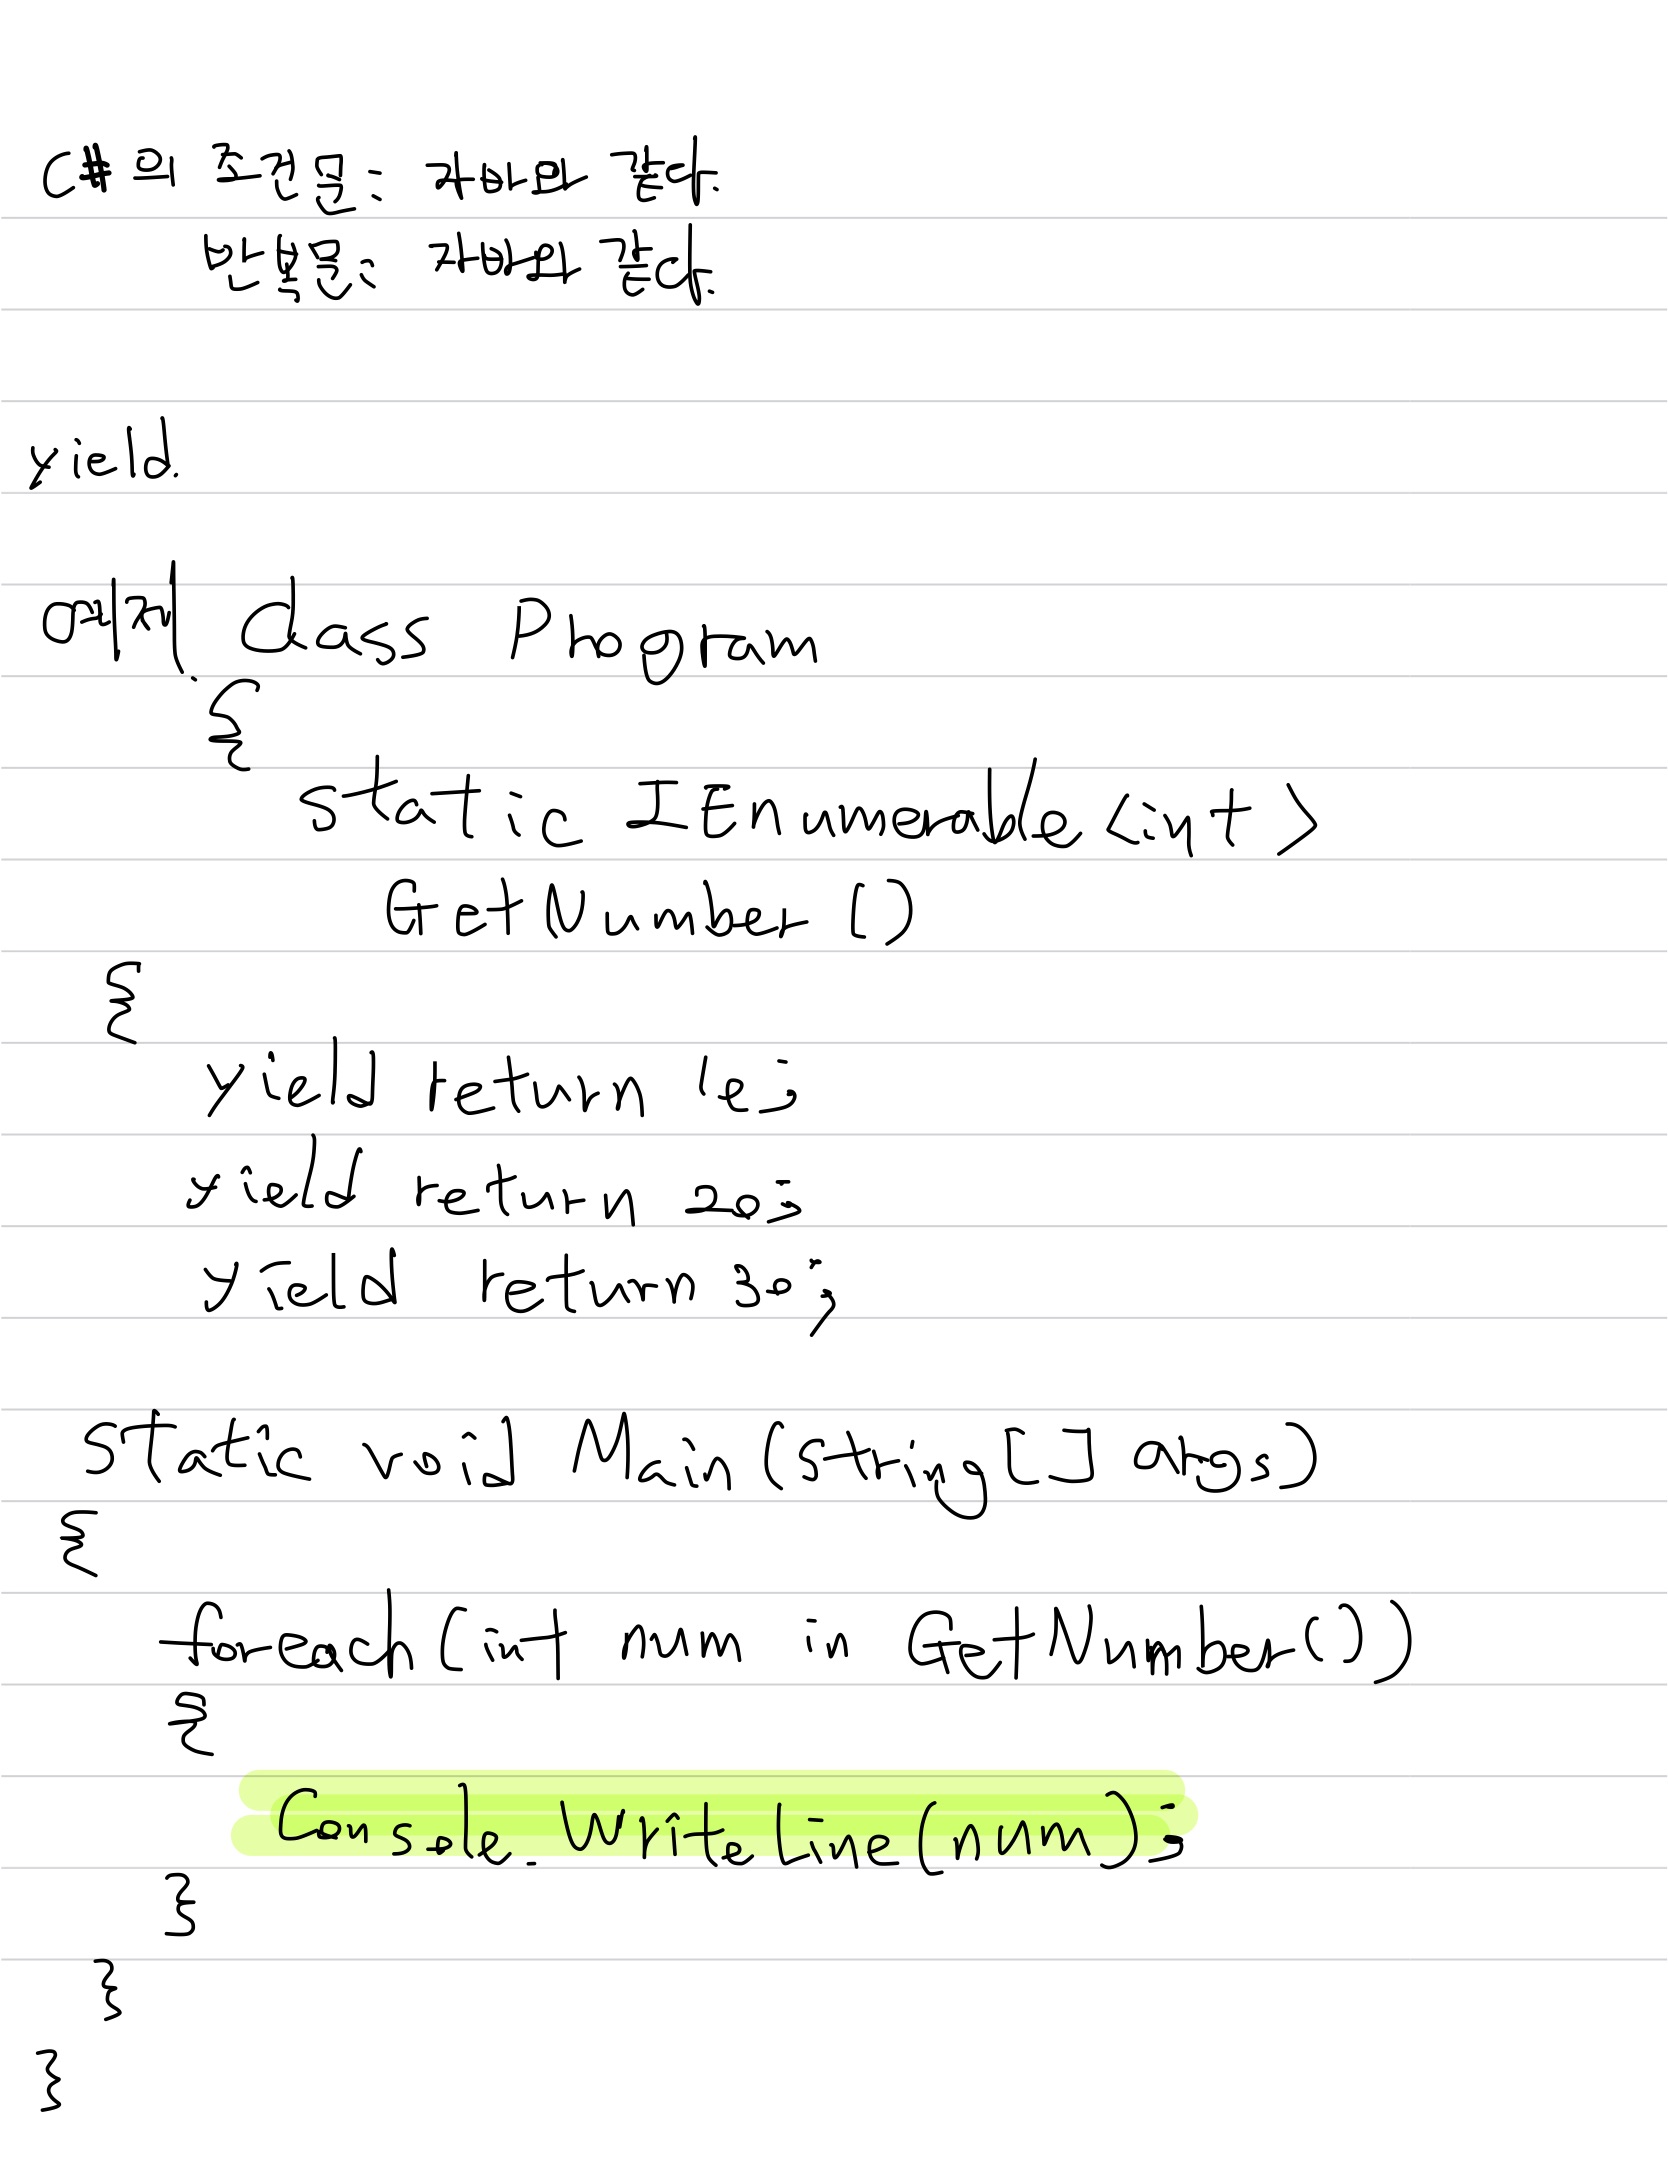 C#의 조건문: 자바와 같다.
반복문: 자바와 같다.
yield.
예제. class Program
{
static IEnumerable<int>
GetNumber()
{
yield return 10;
yield return 20;
yield return 30;
static void Main(string[] args)
{
foreach(int num in GetNumber())
{
Console.WriteLine(num);
}
}
}